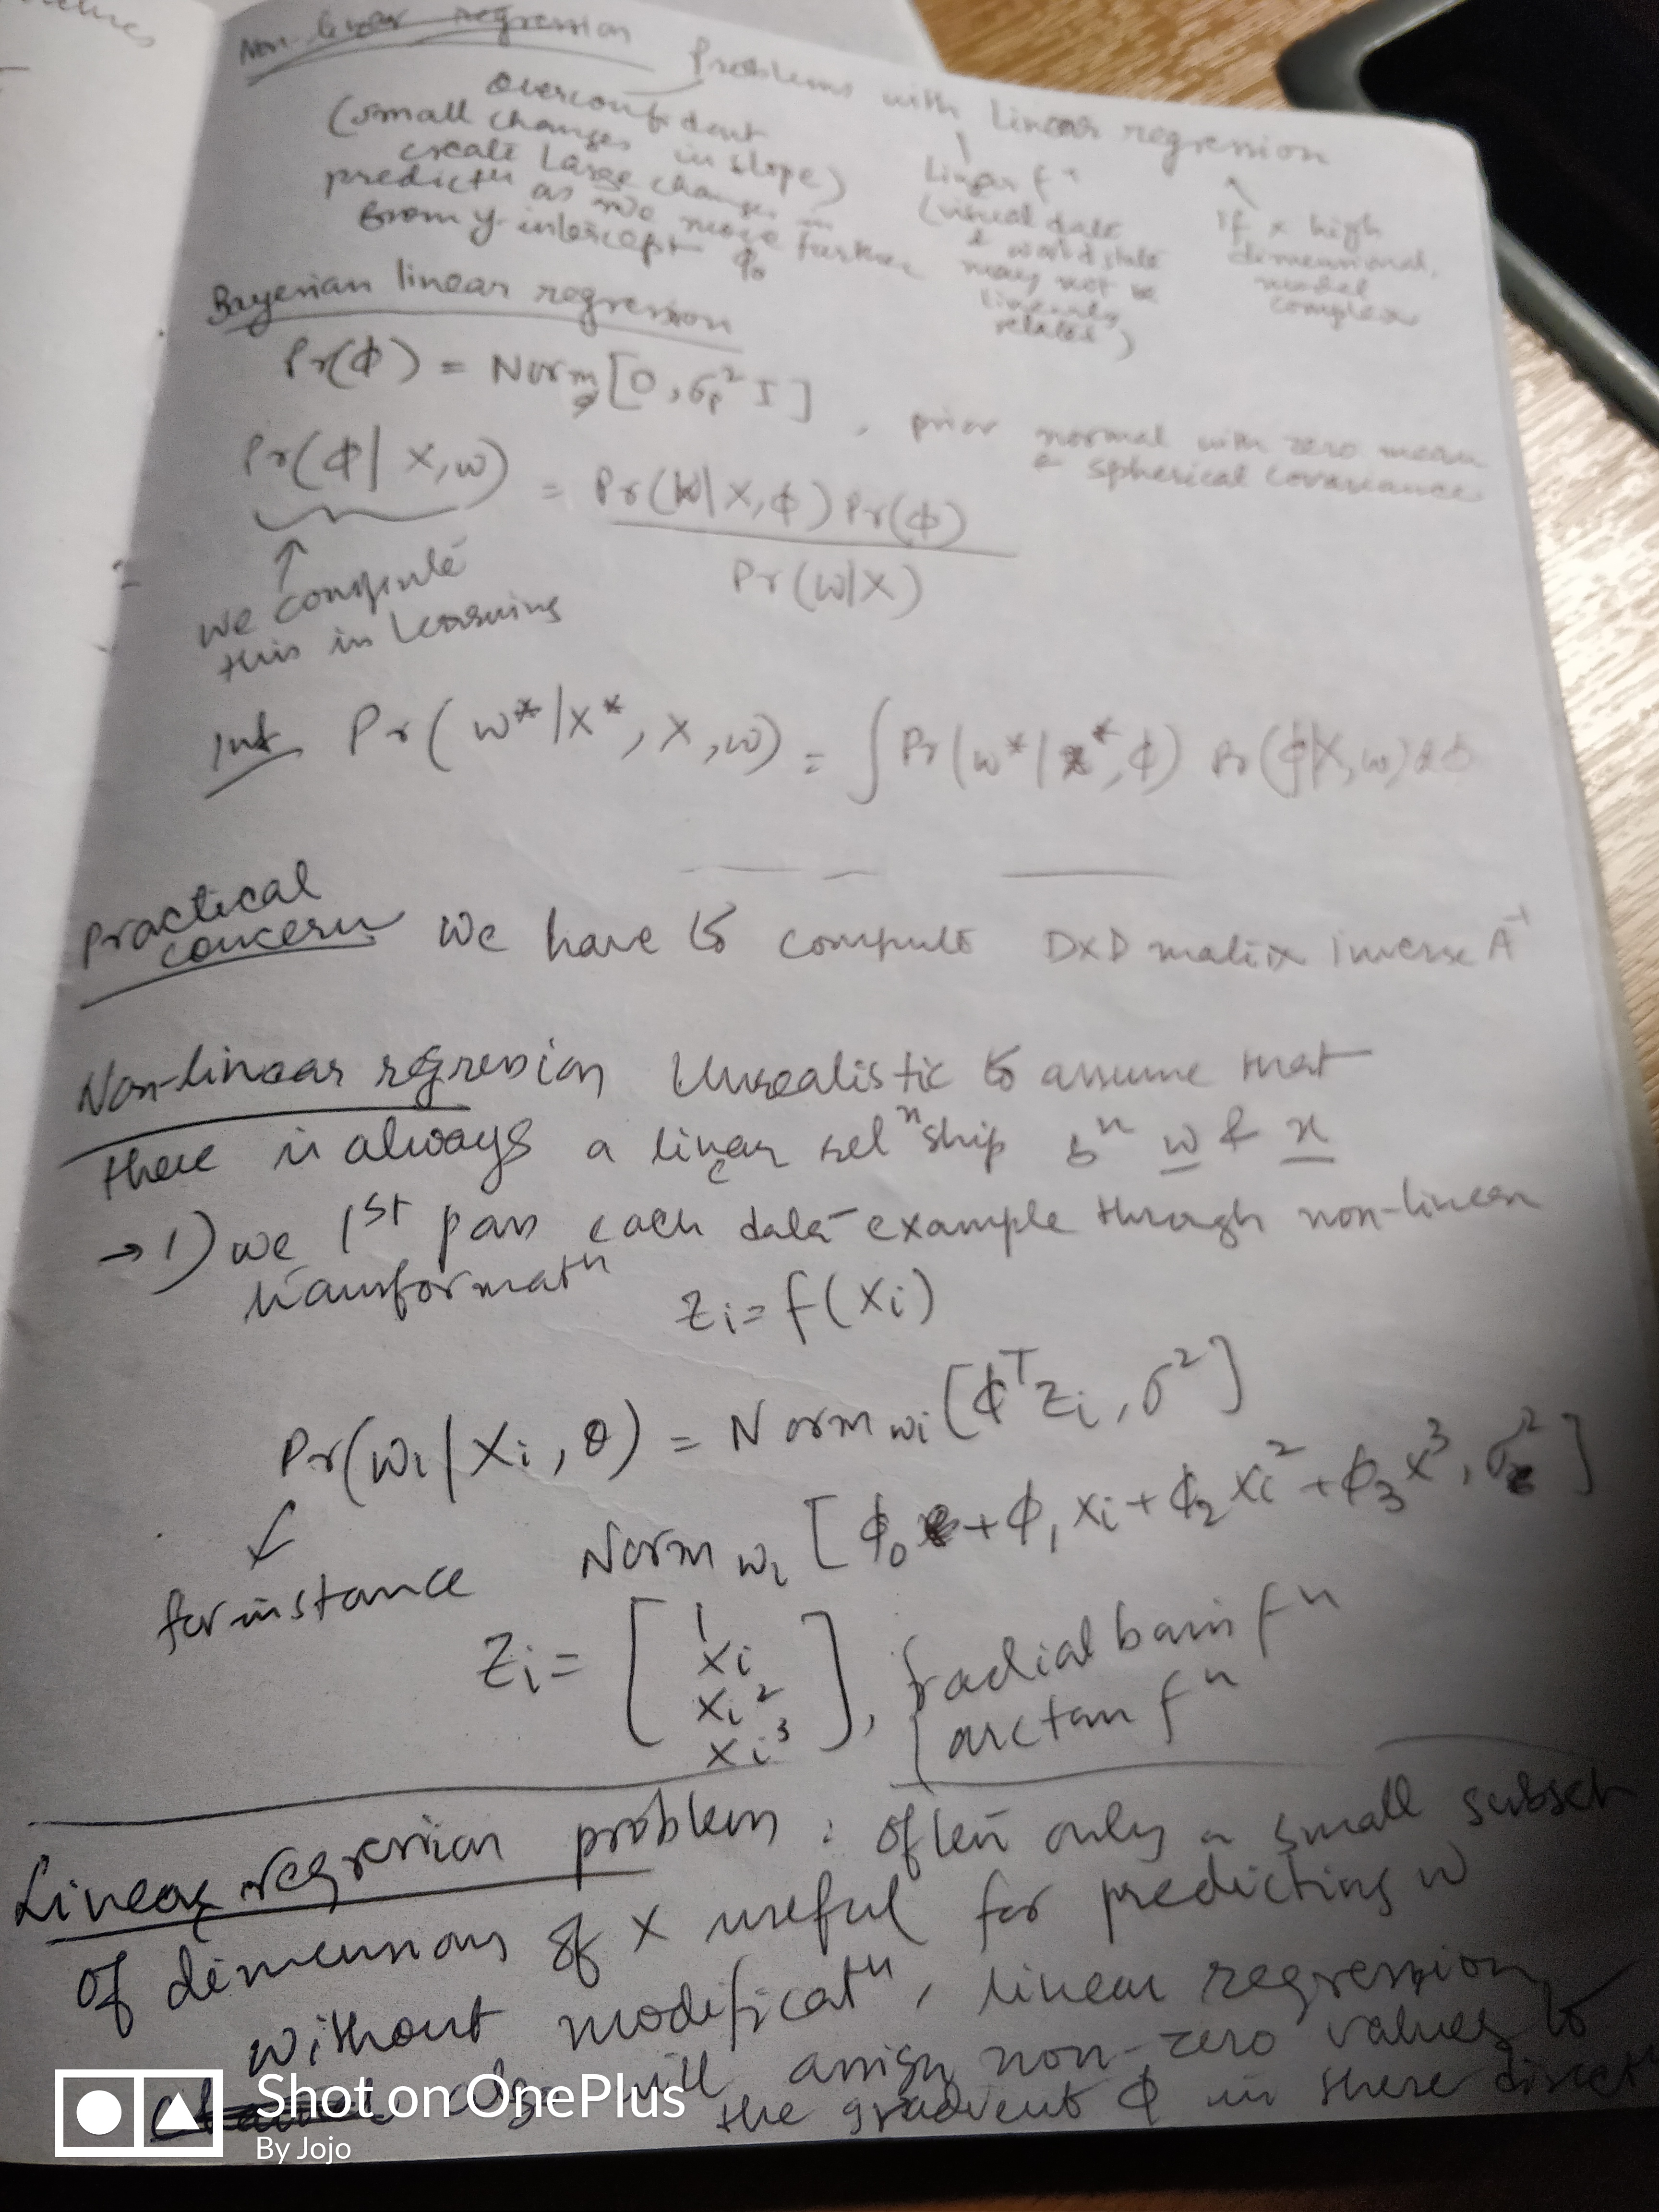 Non-linear regression
Problems with linear regression
Overconfident
(small changes in slope)
create large changes in
predictⁿ as we move further
from y-intercept ϕ₀
Linear fⁿ
(visual data
& world state
may not be
linearly
related)
If x high
dimensional,
model
complex
Bayesian linear regression
Pr(ϕ) = Norm_ϕ[0, σₚ² I], prior normal with zero mean
& spherical covariance
Pr(ϕ|X,w) = Pr(w|X,ϕ) Pr(ϕ)
Pr(w|X)
we compute
this in learning
Inf Pr(w*|x*, X, w) = ∫ Pr(w*|x*, ϕ) Pr(ϕ|X,w) dϕ
Practical
concern We have to compute D×D matrix inverse A⁻¹
Non-linear regression Unrealistic to assume that
there is always a linear relⁿship bⁿ w & x
→ 1) we 1st pass each data-example through non-linear
transformatⁿ
zᵢ = f(xᵢ)
Pr(wᵢ|xᵢ, θ) = Norm wᵢ [ϕᵀzᵢ, σ²]
for instance Norm wᵢ [ϕ₀ + ϕ₁xᵢ + ϕ₂xᵢ² + ϕ₃x³, σ²]
zᵢ = [1
xᵢ
xᵢ²
xᵢ³], radial basis fⁿ
arctan fⁿ
Linear regression problem: often only a small subset
of dimensions of x useful for predicting w
without modificatⁿ, linear regression
algo will assign non-zero values to
the gradient ϕ in these directⁿ
Shot on OnePlus
By Jojo